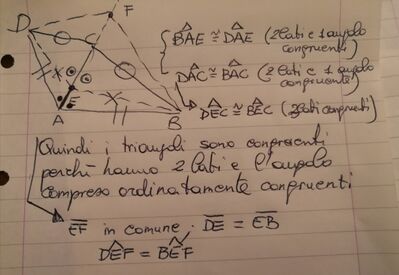 D
F
C
E
A
B
BÂE ≅ DÂE (2 lati e 1 angolo
congruenti)
DÂC ≅ BÂC (2 lati e 1 angolo
congruenti)
DÊC ≅ BÊC (2 lati congruenti)
Quindi i triangoli sono congruenti
perchè hanno 2 lati e l'angolo
compreso ordinatamente congruenti
EF in comune. DE = EB
DÊF = BÊF